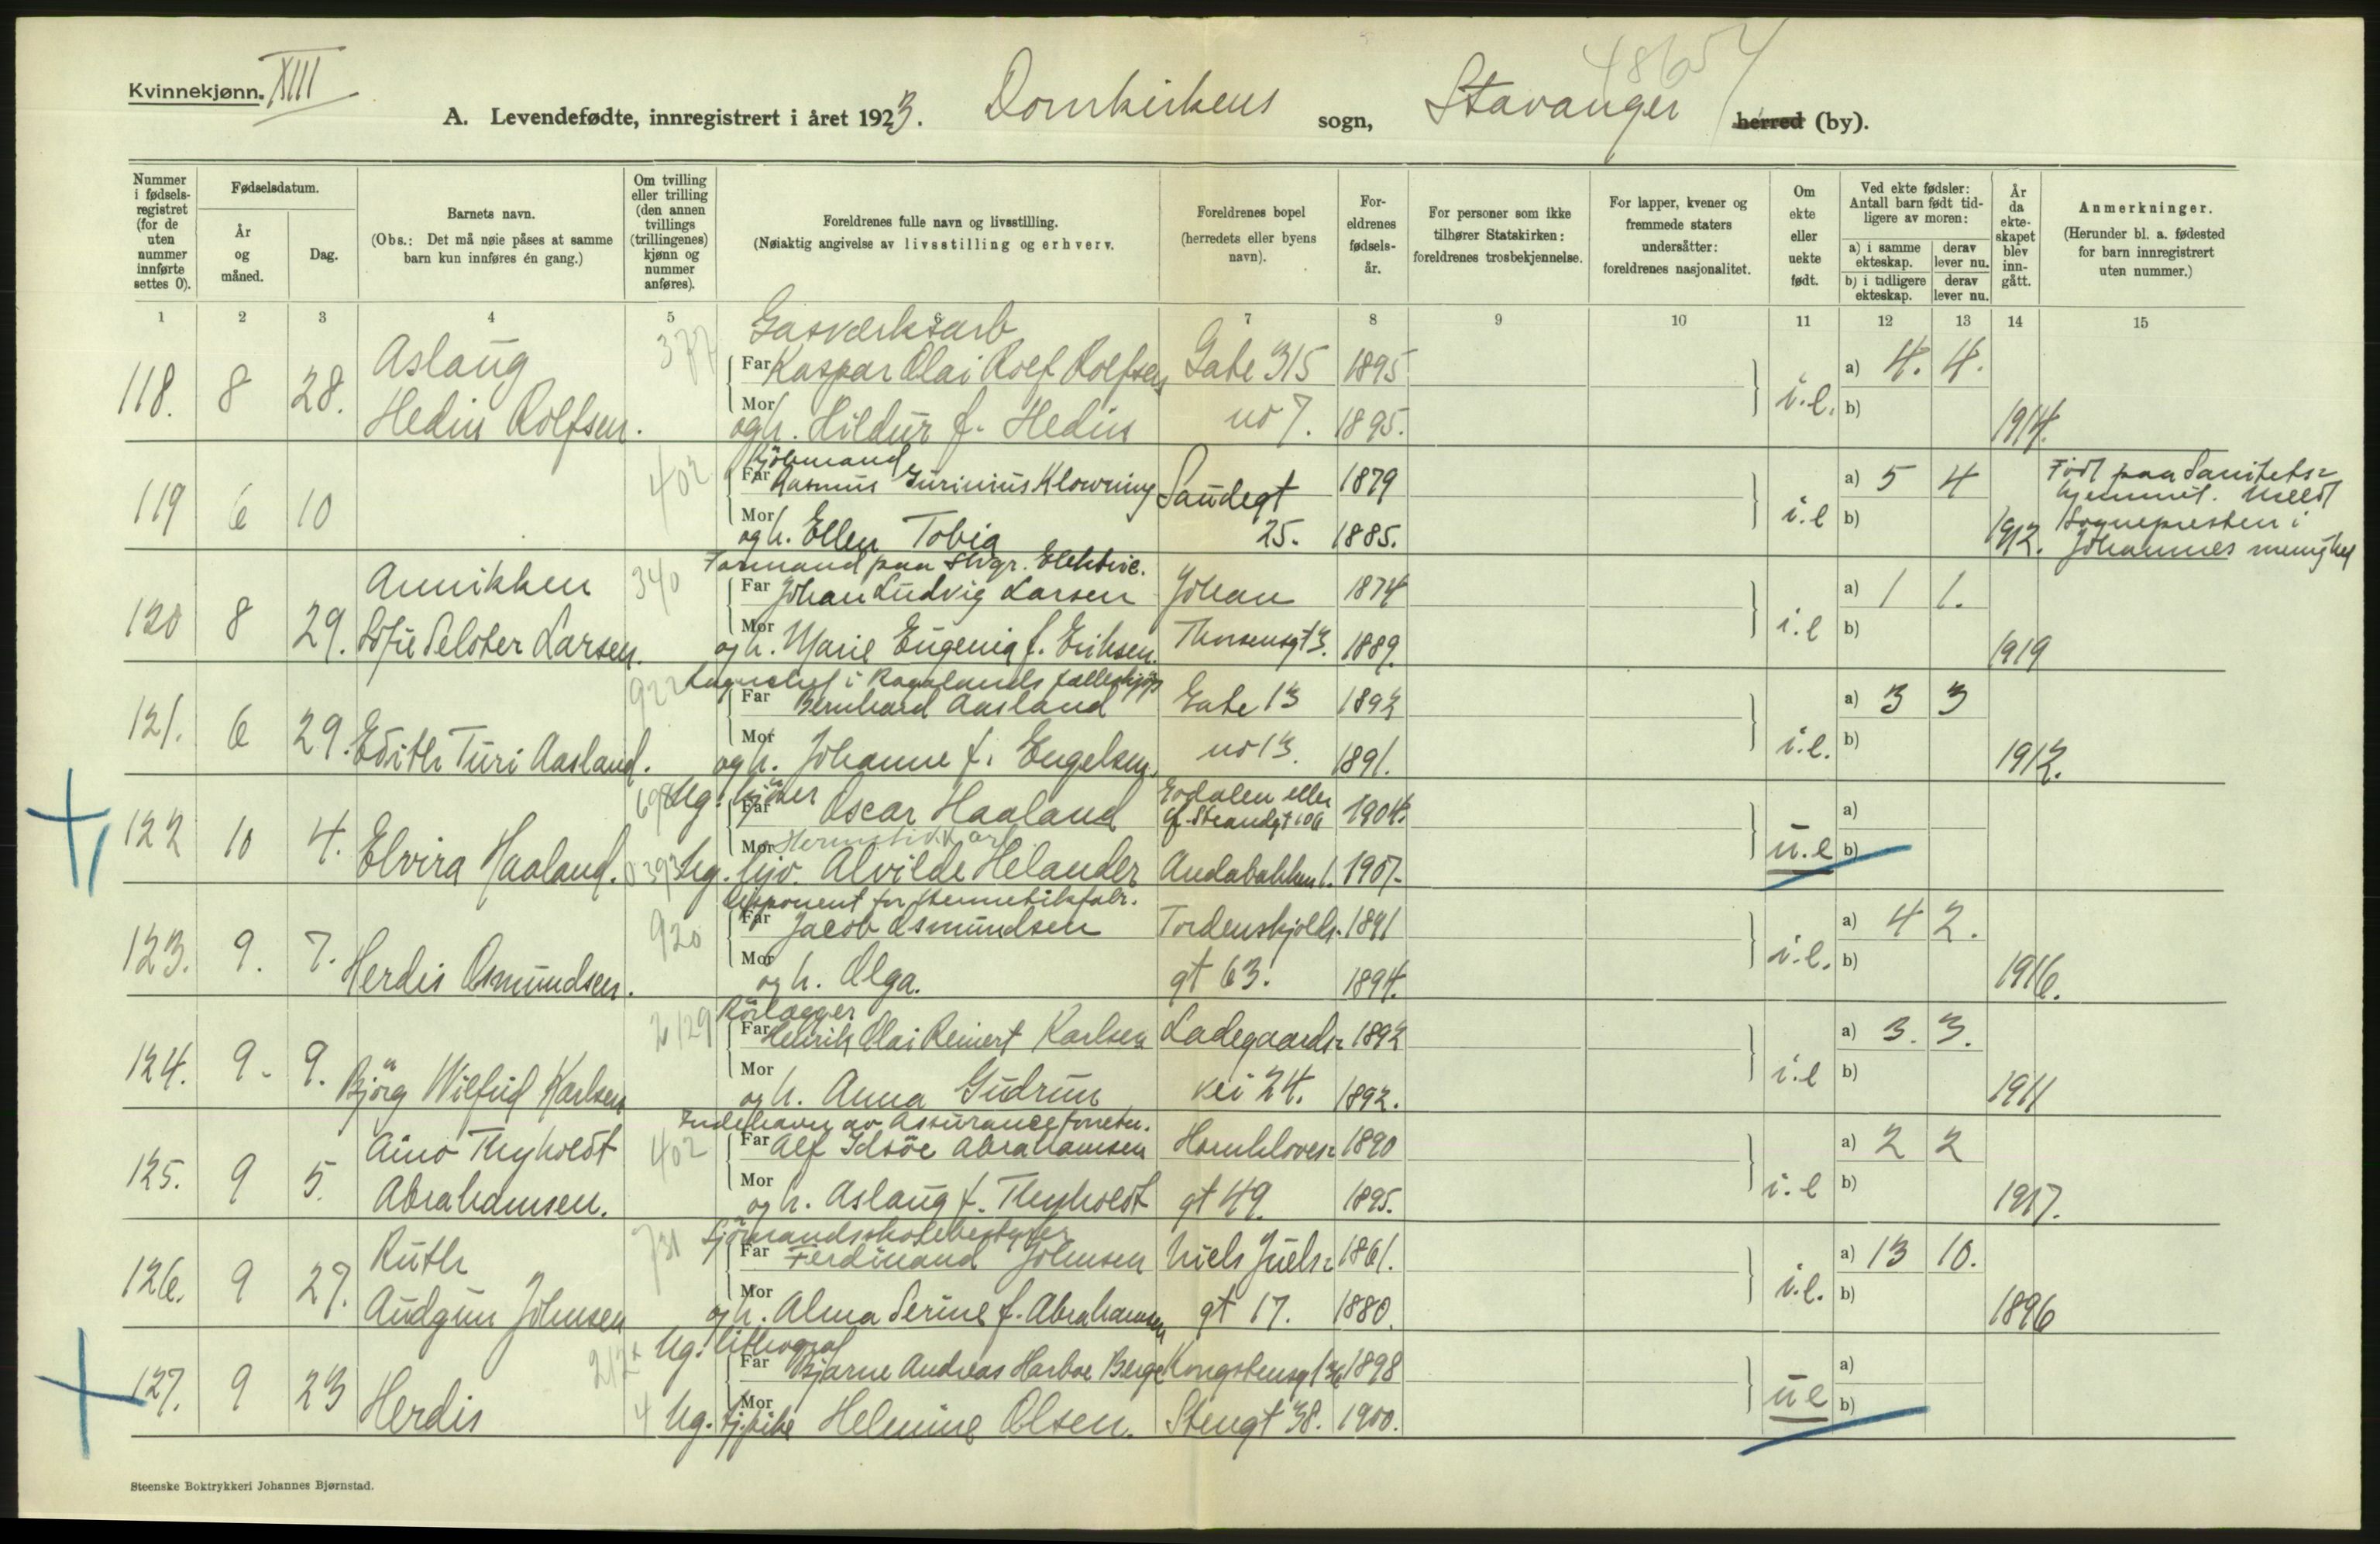 Kvinnekjønn. XIII
48654
A. Levendefødte, innregistrert i året 1923. Domkirkens sogn, Stavanger herred (by).
Nummer i fødsels-registret (for de uten nummer innførte settes 0).
Fødselsdatum.
År og måned.
Dag.
Barnets navn.
(Obs.: Det må nøie påses at samme barn kun innføres én gang.)
Om tvilling eller trilling (den annen tvillings (trillingenes) kjønn og nummer anføres).
Foreldrenes fulle navn og livsstilling.
(Nøiaktig angivelse av livsstilling og erhverv.
Foreldrenes bopel (herredets eller byens navn).
For-eldrenes fødsels-år.
For personer som ikke tilhører Statskirken: foreldrenes trosbekjennelse.
For lapper, kvener og fremmede staters undersåtter: foreldrenes nasjonalitet.
Om ekte eller uekte født.
Ved ekte fødsler: Antall barn født tid-ligere av moren:
a) i samme ekteskap. derav lever nu.
b) i tidligere ekteskap. derav lever nu.
År da ekte-skapet blev inn-gått.
Anmerkninger.
(Herunder bl. a. fødested for barn innregistrert uten nummer.)
1 2 3 4 5 6 7 8 9 10 11 12 13 14 15
377 Gasværksarb
Aslaug Far Kaspar Olai Rolf Rolfsen Gate 315 1895 a) 4. 4.
118. 8 28. Hedius Rolfsen. Mor og h. Hildur f. Hedius no 7. 1895. i.e. b) 1914.
402 Kjöbmand
Far Rasmus Gurinius Klowning Saudegt 1879 a) 5 4 Født paa Sanitets=
119 6 10 Mor og h. Ellen Tobia 25. 1885. i.e b) 1912. hjemmet. Meldt Sognepresten i Johannes menighed
340 Formand paa Stvgr. Elektric.
Annikken Far Johan Ludvig Larsen Johan 1874 a) 1 1.
120 8 29. Sofie Seloter Larsen. Mor og h. Marie Eugenia f. Eriksen. Thorsensgt 3. 1889. i.e b) 1919
922 Lagerchef i Rogalands fælleskjöp
Far Bernhard Aasland Gate 13 1892 a) 3 3
121. 6 29. Edith Turi Aasland. Mor og h. Johanne f. Engelsen. no 13. 1891. i.e. b) 1912.
698 Ug.
Far Oscar Haaland Godalen eller Strandgt 106 1904. a)
122 10 4. Elvira Haaland. Hermetikkarb
Mor Ug. Alvilde Helander Andabakken 1. 1907. u.e b)
920 Disponent for Hermetikfabr.
Far Jacob Asmundsen Tordenskjolds- 1891 a) 4 2.
123. 9. 7. Herdis Osmundsen. Mor og h. Olga. gt 63. 1894. i.e. b) 1916.
Rörlægger
Far Henrik Olai Reinert Karlsen Ladegaards= 1892 a) 3. 3.
124. 9. 9. Björg Wilfrid Karlsen Mor og h. Anna Gudrun vei 24. 1892. i.e b) 1911
402 Indehaver av Assuranceforretn.
Aino Thyholdt Far Alf Idsöe Abrahamsen Hornkloves= 1890 a) 2 2
125. 9 5. Abrahamsen. Mor og h. Aslaug f. Thyholdt gt 49. 1895. i.e b) 1917.
731 Sjömandsskolebestyrer
Ruth Far Ferdinand Johnsen Niels Juels= 1861. a) 13 10.
126. 9 27. Audgun Johnsen Mor og h. Alma Serine f. Abrahamsen gt 17. 1880. i.e. b) 1896
212 Ug. lithograf
Far Bjarne Andreas Harboe Berge Kongstensgt 36 1898 a)
127. 9 23 Herdis 4 Mor Ug. tj.pike Helmine Olsen. Stengt 38. 1900. u e b)
Steenske Boktrykkeri Johannes Bjørnstad.